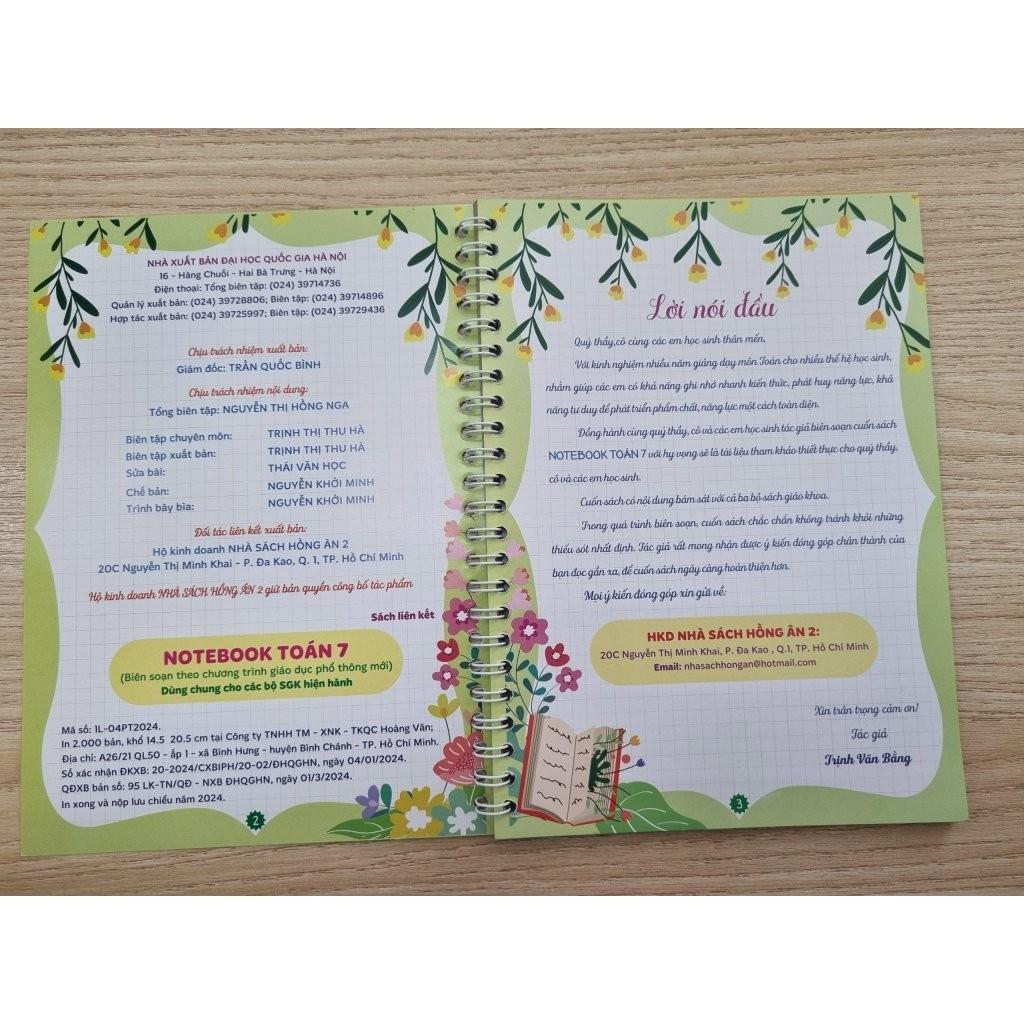 NHÀ XUẤT BẢN ĐẠI HỌC QUỐC GIA HÀ NỘI
16 - Hàng Chuối - Hai Bà Trưng - Hà Nội
Điện thoại: Tổng biên tập: (024) 39714736
Quản lý xuất bản: (024) 39728806; Biên tập: (024) 39714896
Hợp tác xuất bản: (024) 39725997; Biên tập: (024) 39729436
Chịu trách nhiệm xuất bản:
Giám đốc: TRẦN QUỐC BÌNH
Chịu trách nhiệm nội dung:
Tổng biên tập: NGUYỄN THỊ HỒNG NGA
Biên tập chuyên môn: TRỊNH THỊ THU HÀ
Biên tập xuất bản: TRỊNH THỊ THU HÀ
Sửa bài: THÁI VĂN HỌC
Chế bản: NGUYỄN KHỞI MINH
Trình bày bìa: NGUYỄN KHỞI MINH
Đối tác liên kết xuất bản:
Hộ kinh doanh NHÀ SÁCH HỒNG ÂN 2
20C Nguyễn Thị Minh Khai - P. Đa Kao, Q. 1, TP. Hồ Chí Minh
Hộ kinh doanh NHÀ SÁCH HỒNG ÂN 2 giữ bản quyền công bố tác phẩm
Sách liên kết
NOTEBOOK TOÁN 7
(Biên soạn theo chương trình giáo dục phổ thông mới)
Dùng chung cho các bộ SGK hiện hành
Mã số: 1L-04PT2024.
In 2.000 bản, khổ 14.5 20.5 cm tại Công ty TNHH TM - XNK - TKQC Hoàng Văn;
Địa chỉ: A26/21 QL50 - ấp 1 - xã Bình Hưng - huyện Bình Chánh - TP. Hồ Chí Minh.
Số xác nhận ĐKXB: 20-2024/CXBIPH/20-02/ĐHQGHN, ngày 04/01/2024.
QĐXB bản số: 95 LK-TN/QĐ - NXB ĐHQGHN, ngày 01/3/2024.
In xong và nộp lưu chiểu năm 2024.
2
Lời nói đầu
Quý thầy,cô cùng các em học sinh thân mến,
Với kinh nghiệm nhiều năm giảng dạy môn Toán cho nhiều thế hệ học sinh,
nhằm giúp các em có khả năng ghi nhớ nhanh kiến thức, phát huy năng lực, khả
năng tư duy để phát triển phẩm chất, năng lực một cách toàn diện.
Đồng hành cùng quý thầy, cô và các em học sinh tác giả biên soạn cuốn sách
NOTEBOOK TOÁN 7 với hy vọng sẽ là tài liệu tham khảo thiết thực cho quý thầy,
cô và các em học sinh.
Cuốn sách có nội dung bám sát với cả ba bộ sách giáo khoa.
Trong quá trình biên soạn, cuốn sách chắc chắn không tránh khỏi những
thiếu sót nhất định. Tác giả rất mong nhận được ý kiến đóng góp chân thành của
bạn đọc gần xa, để cuốn sách ngày càng hoàn thiện hơn.
Mọi ý kiến đóng góp xin gửi về:
HKD NHÀ SÁCH HỒNG ÂN 2:
20C Nguyễn Thị Minh Khai, P. Đa Kao , Q.1, TP. Hồ Chí Minh
Email: nhasachhongan@hotmail.com
Xin trân trọng cảm ơn!
Tác giả
Trịnh Văn Bằng
3